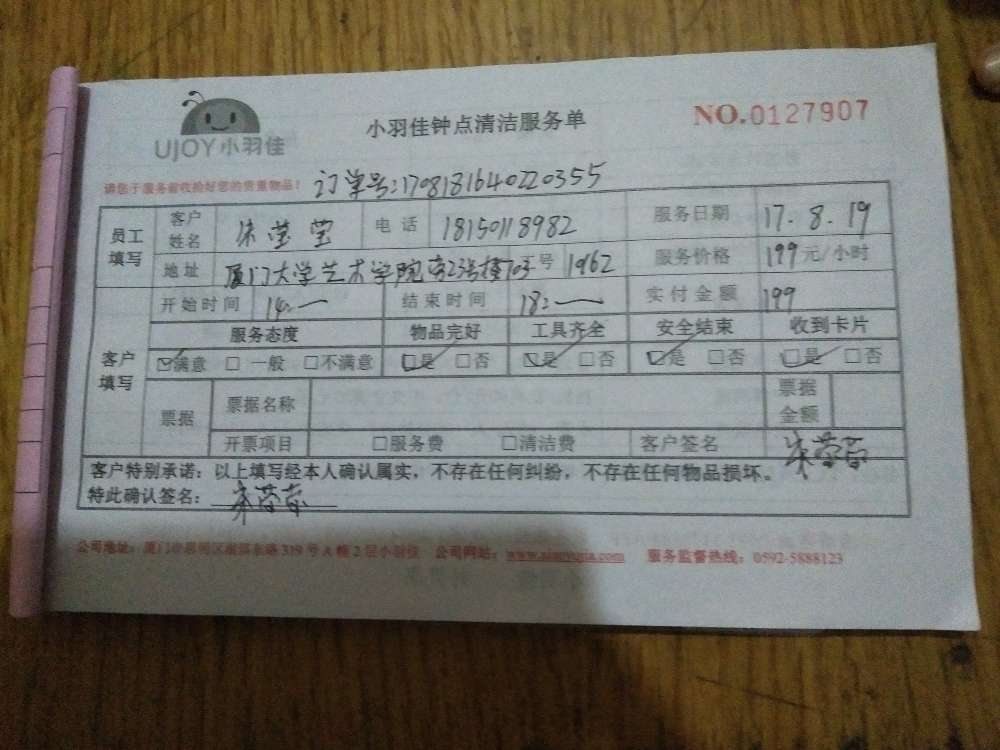 UJOY小羽佳
小羽佳钟点清洁服务单
NO.0127907
请您于服务前收捡好您的贵重物品!
订单号:1708181640220355
员工填写
客户姓名 朱莹莹 电话 18150118982 服务日期 17.8.19
地址 厦门大学艺术学院 号 1962 服务价格 199元/小时
客户填写
开始时间 14:— 结束时间 18:— 实付金额 199
服务态度 物品完好 工具齐全 安全结束 收到卡片
☑满意 □一般 □不满意 ☑是 □否 ☑是 □否 ☑是 □否 ☑是 □否
票据 票据名称 票据金额
开票项目 □服务费 □清洁费 客户签名 朱莹莹
客户特别承诺:以上填写经本人确认属实,不存在任何纠纷,不存在任何物品损坏。
特此确认签名: 朱莹莹
公司地址:厦门市思明区 319号A幢2层小羽佳 公司网站: 服务监督热线:0592-5888123